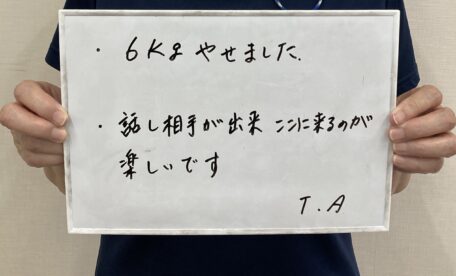 ・6Kgやせました.
・話し相手が出来 ここに来るのが
楽しいです
T.A